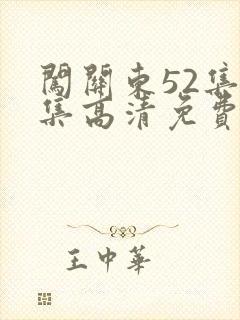 闖關東52集
集高清免費
王中華